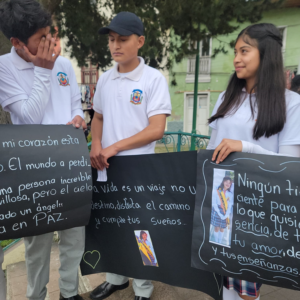 mi corazón esta
o. El mundo a perdi
una persona increíble
villosa, pero el cielo
ado un ángel
a en PAZ.
a vida es un viaje no u
destino, disfruta el camino
y cumple tus sueños
Ningún ti
ente para
lo que quis
sencia, de t
tu amor, de
y tus
enseñanzas